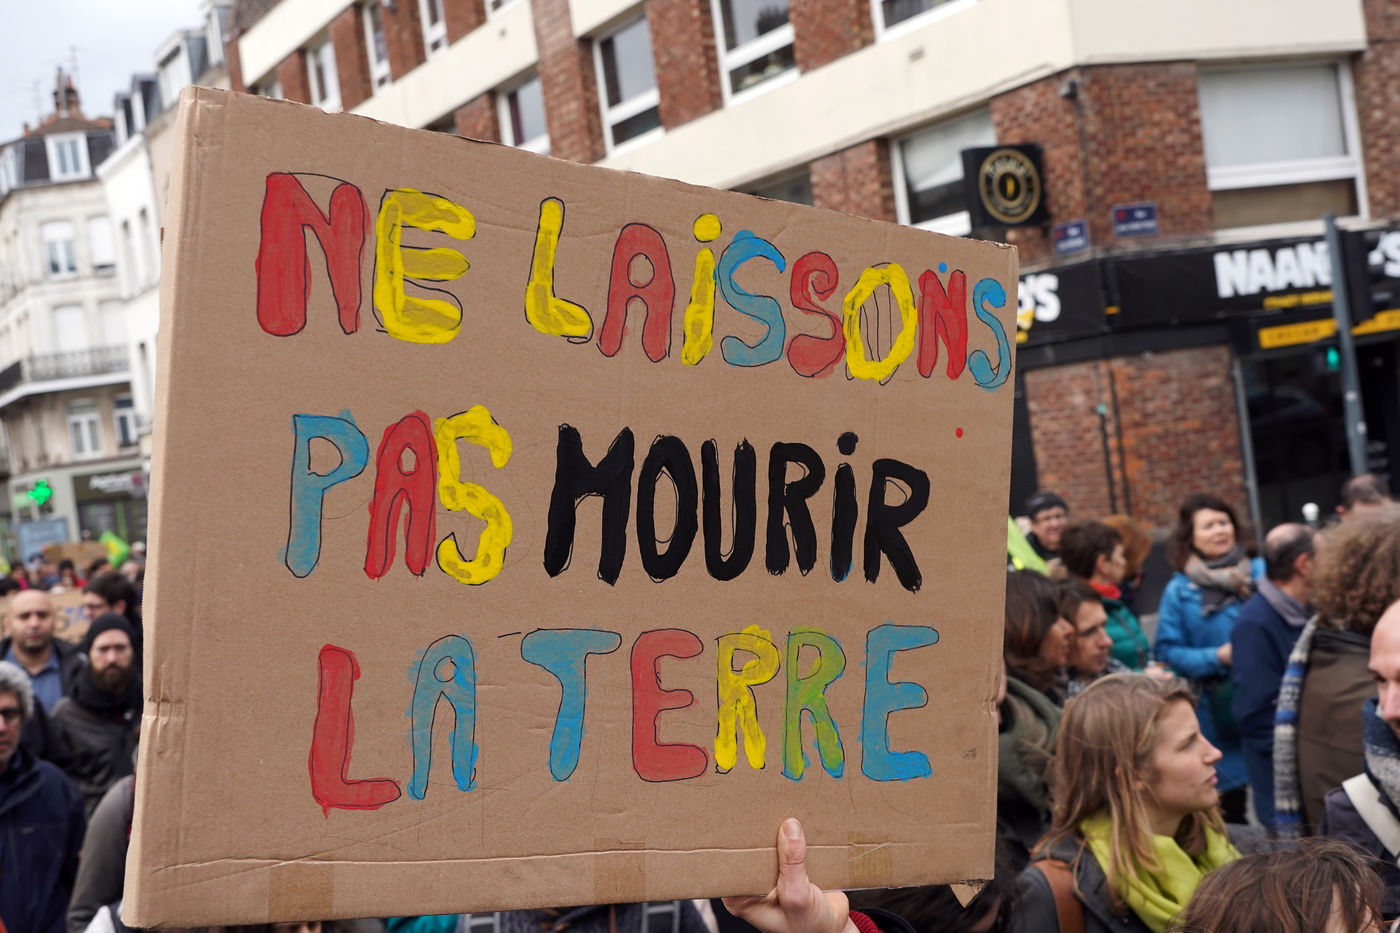 NE LAiSSONS
PAS MOURiR
LA TERRE
NAAN